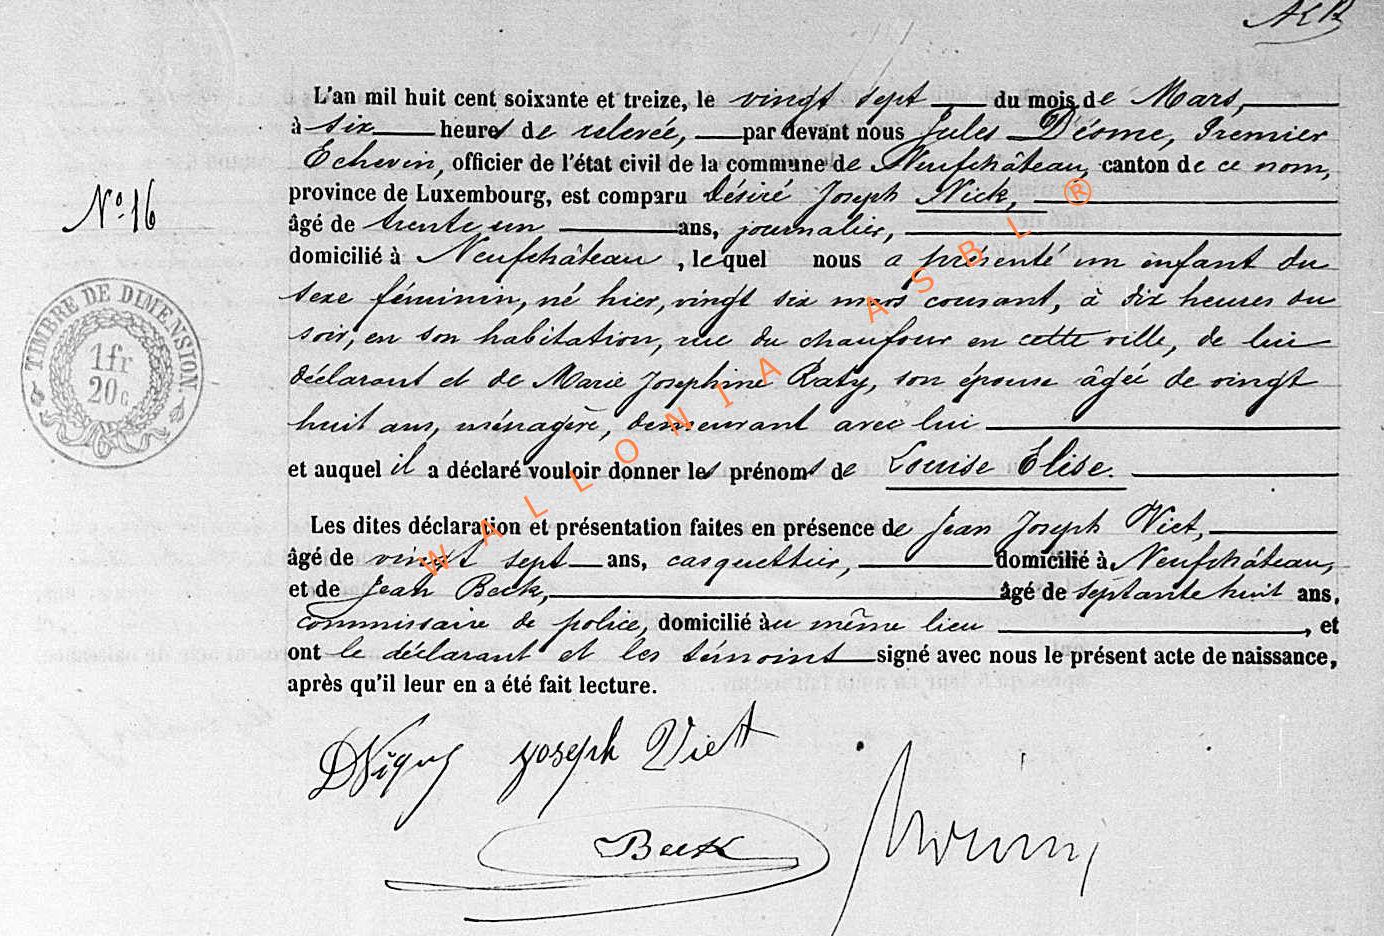 N.º 16
TIMBRE DE DIMENSION
1 fr
20 c
L'an mil huit cent soixante et treize, le vingt sept du mois de Mars,
à six heures de relevée, par devant nous Jules Déome, Premier
Echevin, officier de l'état civil de la commune de Neufchâteau, canton de ce nom,
province de Luxembourg, est comparu Désiré Joseph Nick,
âgé de trente un ans, journalier,
domicilié à Neufchâteau, lequel nous a présenté un enfant du
sexe féminin, né hier, vingt six mars courant, à dix heures du
soir, en son habitation, rue du chaufour en cette ville, de lui
déclarant et de Marie Josephine Raty, son épouse âgée de vingt
huit ans, ménagère, demeurant avec lui
et auquel il a déclaré vouloir donner les prénoms de Louise Élise.
Les dites déclaration et présentation faites en présence de Jean Joseph Viet,
âgé de vingt sept ans, casquettier, domicilié à Neufchâteau,
et de Jean Beck, âgé de septante huit ans,
commissaire de police, domicilié au même lieu, et
ont le déclarant et les témoins signé avec nous le présent acte de naissance,
après qu'il leur en a été fait lecture.
Joseph Viett
Beck
WALLONIA ASBL ®